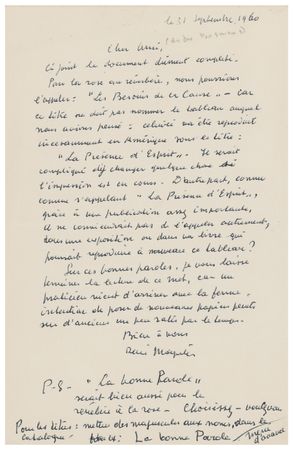 le 31 Septembre, 1960
Cher Ami,
Ci-joint le document dûment complété.
Pour la rose au réverbère, nous pourrions
l'appeler: "Les Besoins de la Cause" – car
ce titre ne doit pas nommer le tableau auquel
nous avions pensé: celui-ci va être reproduit
incessamment en Amérique sous le titre:
"La Présence d'Esprit". Il serait
compliqué de changer quelque chose
l'impression est en cours. D'autre part, connu
comme s'appelant "La Présence d'Esprit",
grâce à une publication assez importante,
il ne conviendrait pas de l'appeler autrement,
dans une exposition ou dans un livre qui
pourrait reproduire à nouveau ce tableau?
Sur ces bonnes paroles, je vous laisse
terminer la lecture de ce mot, car un
praticien vient d'arriver avec la ferme
intention de poser de nouveaux papiers peints
sur d'anciens un peu salis par le temps.
Bien à vous
René Magritte
P.-S- "La bonne Parole"
serait bien aussi pour le
réverbère à la rose – Choisissez – voulez-vous
Pour les titres: mettre des majuscules aux noms, dans le
catalogue: La bonne Parole
merci
d'avance